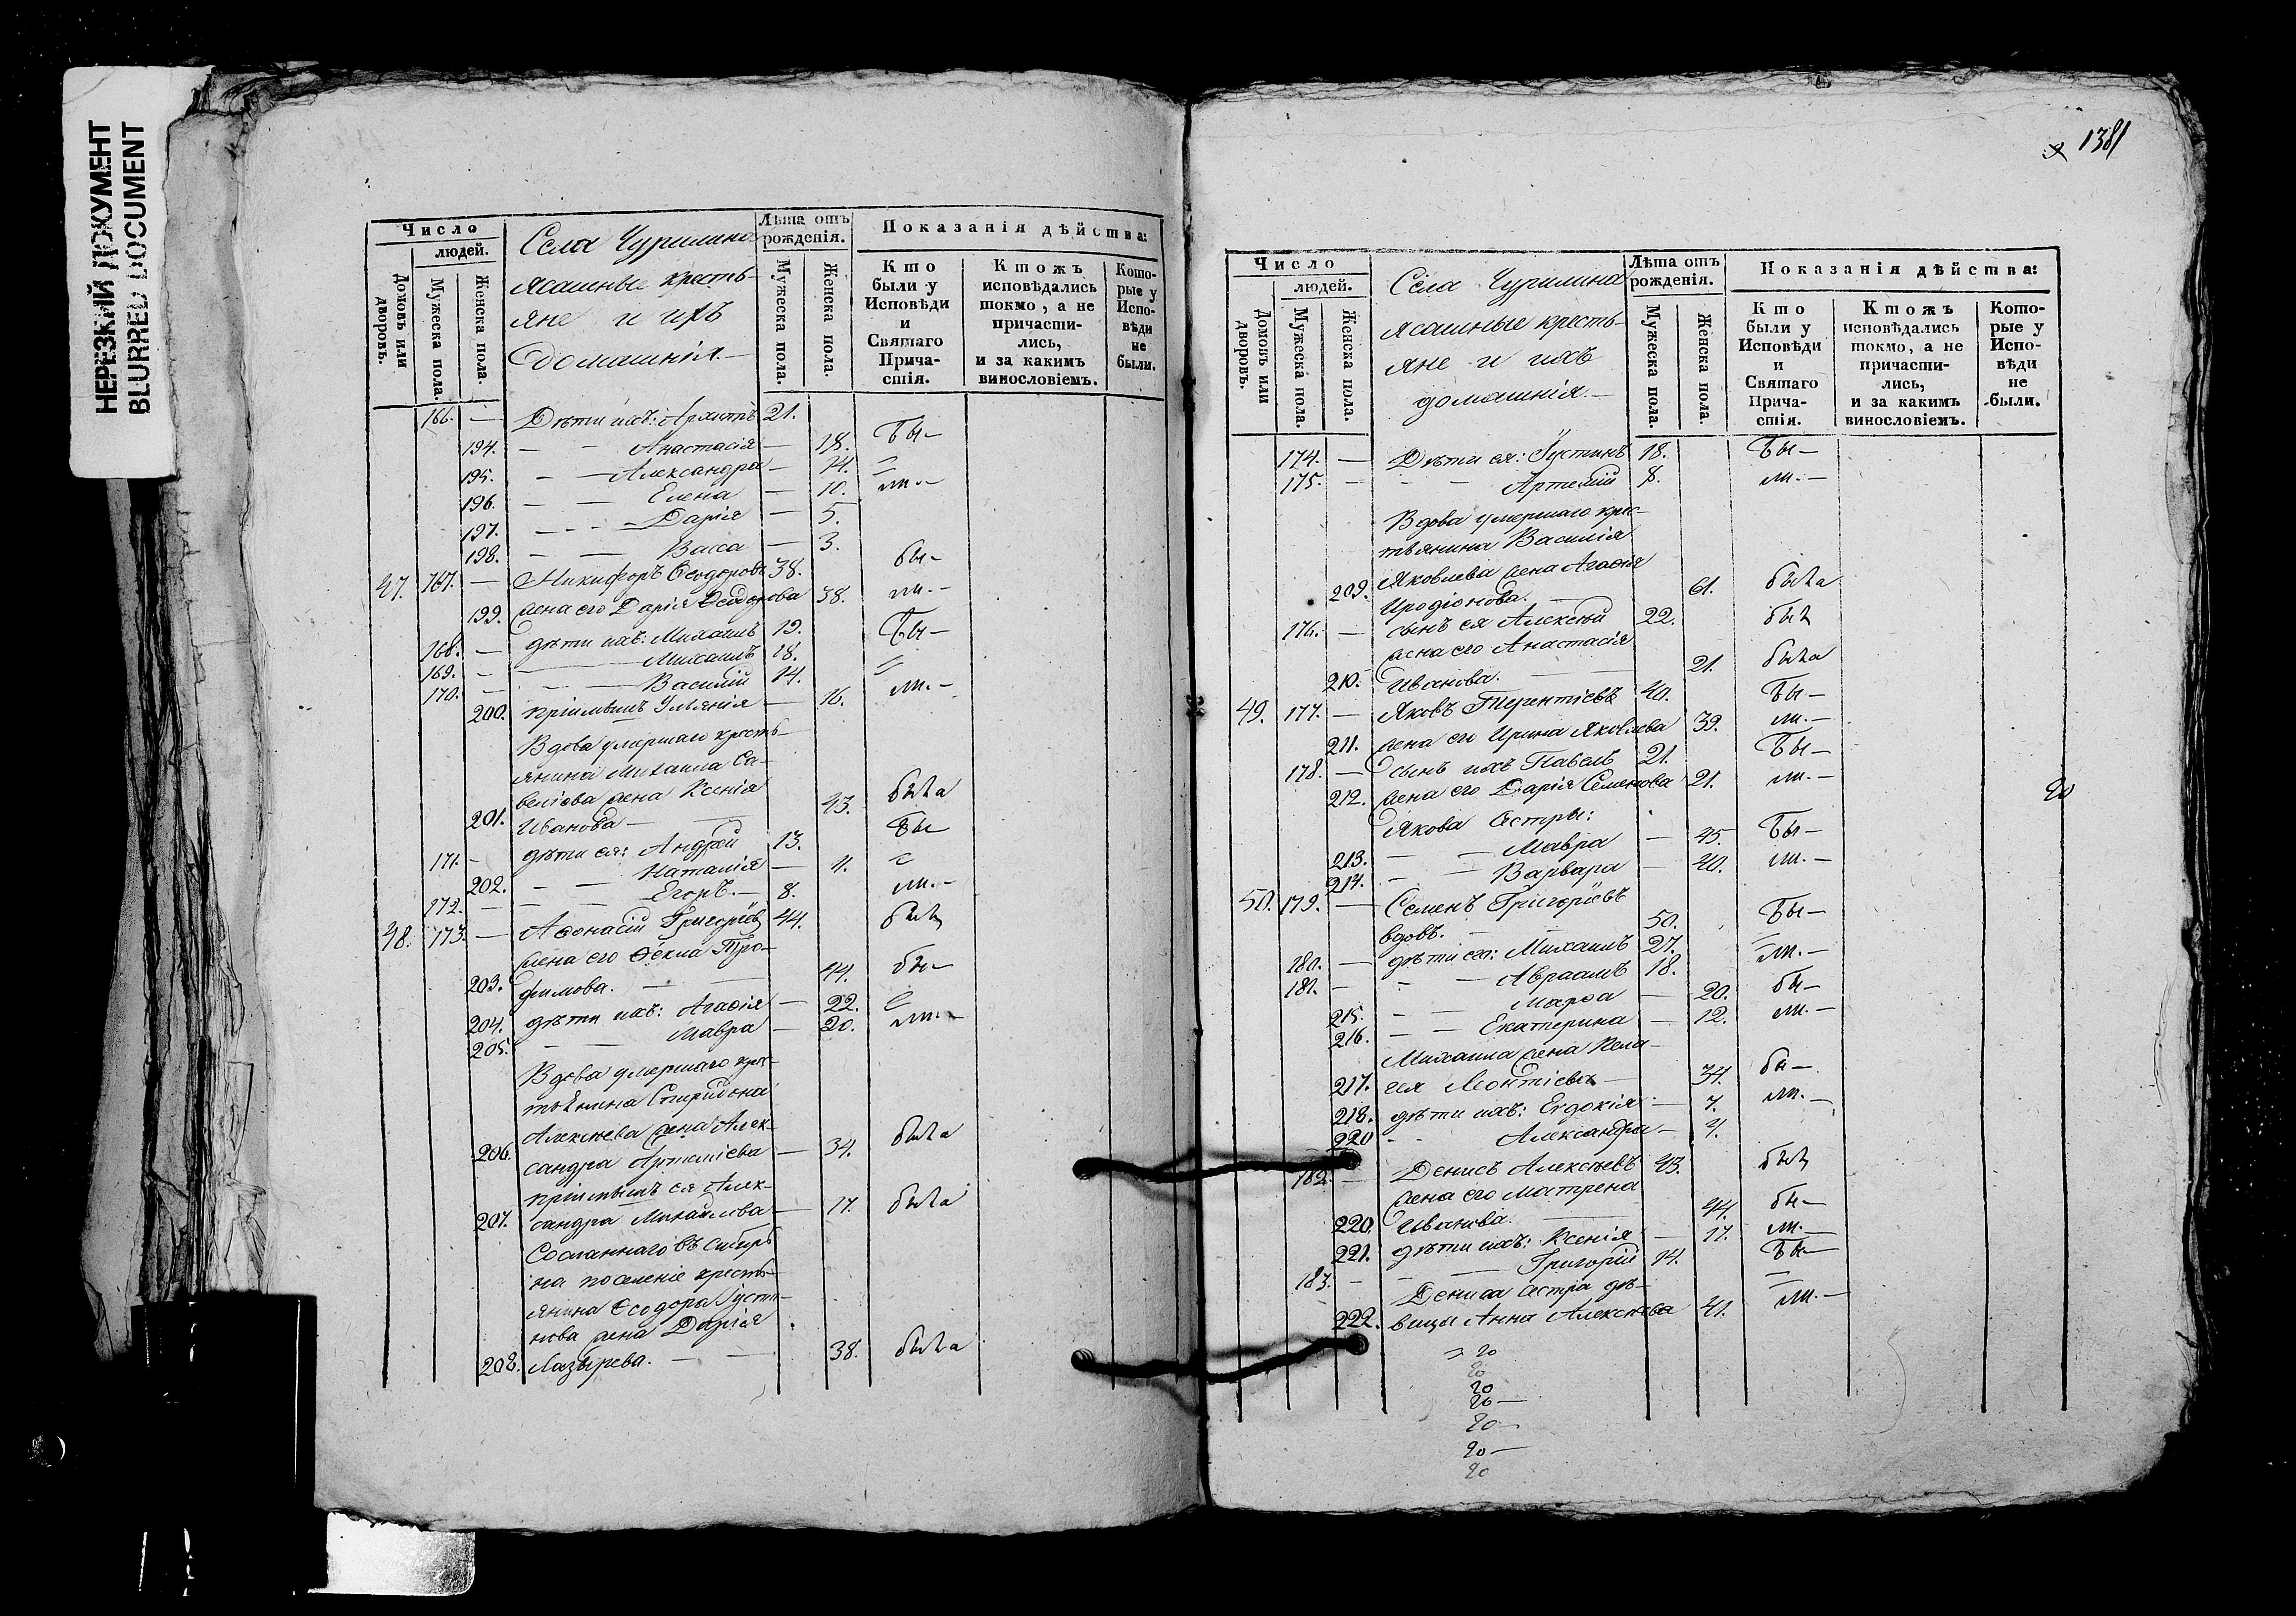 НЕРЕЗКИЙ ДОКУМЕНТ
BLURRED DOCUMENT
Число
людей.
Домовъ или дворовъ.
Мужеска пола.
Женска пола.
Села Чурилина
ясашные кресть-
яне и ихъ
домашнія.—
Лѣта отъ рожденія.
Мужеска пола.
Женска пола.
Показанія дѣйства:
Кто были у Исповѣди и Святаго Причастія.
Ктожъ исповѣдались токмо, а не причастились, и за какимъ винословіемъ.
Которые у Исповѣди не были.
166. — Дѣти ихъ: 21.
194. — — Анастасія — 18. Бы—
195. — — Александра — 14. =
196. — — Елена — 10. ли.—
197. — — Дарія — 5.
198. — — Васса — 3.
47. 167. — Никифоръ Ѳеодоровъ 38. бы—
199. жена его Дарія Ѳеодорова 38. ли.—
168. — дѣти ихъ: Михаилъ 19. Бы—
169. — — Михаилъ 18. =
170. — — Василій 14. ли.—
200. пріимышъ Ульянія — 16.
Вдова умершаго кресть-
янина Михаила Са-
веліева жена Ксенія
201. Иванова — — 43. была
171. — дѣти ея: Андрей 13. Бы—
202. — — Наталія — 11. =
172. — — Егоръ. — 8. ли.—
48. 173. — Аѳонасій Григорьев 44. былъ
жена его Ѳекла Тро-
203. фимова. — — 44. бы—
204. дѣти ихъ: Агаѳія — 22. =
205. — — Мавра — 20. ли.—
Вдова умершаго крес-
тьянина Спиридона
Алексѣева жена Алек-
206. сандра Артеміева — 34. была
пріимышъ ея Алек-
207. сандра Михайлова — 17. была
Сосланнаго въ Сибирь
на поселеніе кресть-
янина Ѳеодора Густи-
нова жена Дарія
208. Лазырева. — — 38. была
1381
Число
людей.
Домовъ или дворовъ.
Мужеска пола.
Женска пола.
Села Чурилина
ясашные кресть-
яне и ихъ
домашнія.—
Лѣта отъ рожденія.
Мужеска пола.
Женска пола.
Показанія дѣйства:
Кто были у Исповѣди и Святаго Причастія.
Ктожъ исповѣдались токмо, а не причастились, и за какимъ винословіемъ.
Которые у Исповѣди не были.
174. — Дѣти ея: Густинъ 18. Бы—
175. — — Артемій 8. ли.—
Вдова умершаго крес-
тьянина Василія
Яковлева жена Агаѳія
209. Иродіонова. — 61. была
176. — сынъ ея Алексѣй 22. былъ
жена его Анастасія
210. Иванова. — 21. была
49. 177. — Яковъ Терентіевъ 40. Бы—
211. жена его Ирина Яковлева 39. ли.—
178. — сынъ ихъ Павелъ 21. Бы—
212. жена его Дарія Семенова 21. ли.—
20
Якова сестры:
213. — — Мавра — 45. Бы—
214. — — Варвара — 40. ли.—
50. 179. — Семенъ Григорьевъ
вдовъ. — — 50. Бы—
180. — дѣти его: Михаилъ 27. =
181. — — Авраамъ 18. ли.—
215. — — Марѳа — 20. бы—
216. — — Екатерина — 12. ли.—
Михаила жена Пела-
217. гея Леонтіева — 34. бы—
218. дѣти ихъ: Евдокія — 7. ли.—
220 — — Александра — 4.
182. — Денисъ Алексѣевъ 43. былъ
жена его Матрена
220. Иванова. — 44. бы—
221. дѣти ихъ: Ксенія — 17. ли.—
183. — — Григорій 14. Бы—
Дениса сестра дѣ-
222. вица Анна Алексѣева 41. ли.—
20
20
20
20—
20—
20—
20